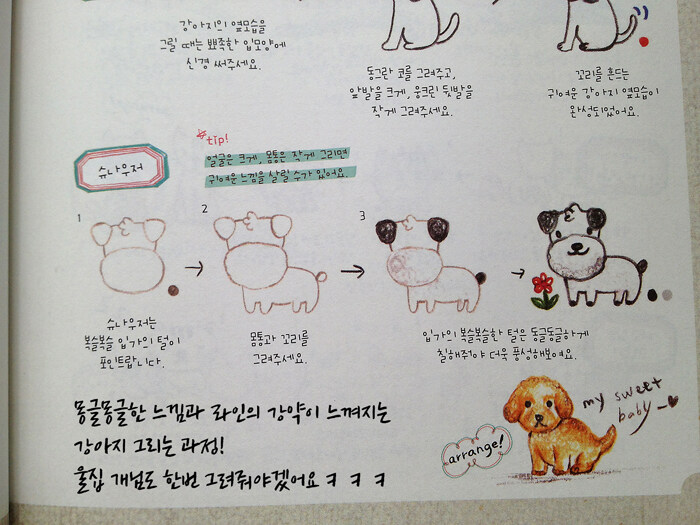 강아지의 옆모습을
그릴 때는 뾰족한 입모양에
신경 써주세요.
동그란 코를 그려주고,
앞발을 크게, 웅크린 뒷발을
작게 그려주세요.
꼬리를 흔드는
귀여운 강아지 옆모습이
완성되었어요.
tip!
슈나우저
얼굴은 크게, 몸통은 작게 그리면
귀여운 느낌을 살릴 수가 있어요.
1
2
3
슈나우저는
복슬복슬 입가의 털이
포인트랍니다.
몸통과 꼬리를
그려주세요.
입가의 복슬복슬한 털은 동글동글하게
칠해줘야 더욱 풍성해보여요.
몽글몽글한 느낌과 라인의 강약이 느껴지는
강아지 그리는 과정!
울집 개님도 한번 그려줘야겠어요 ㅋ ㅋ ㅋ
arrange!
my sweet
baby